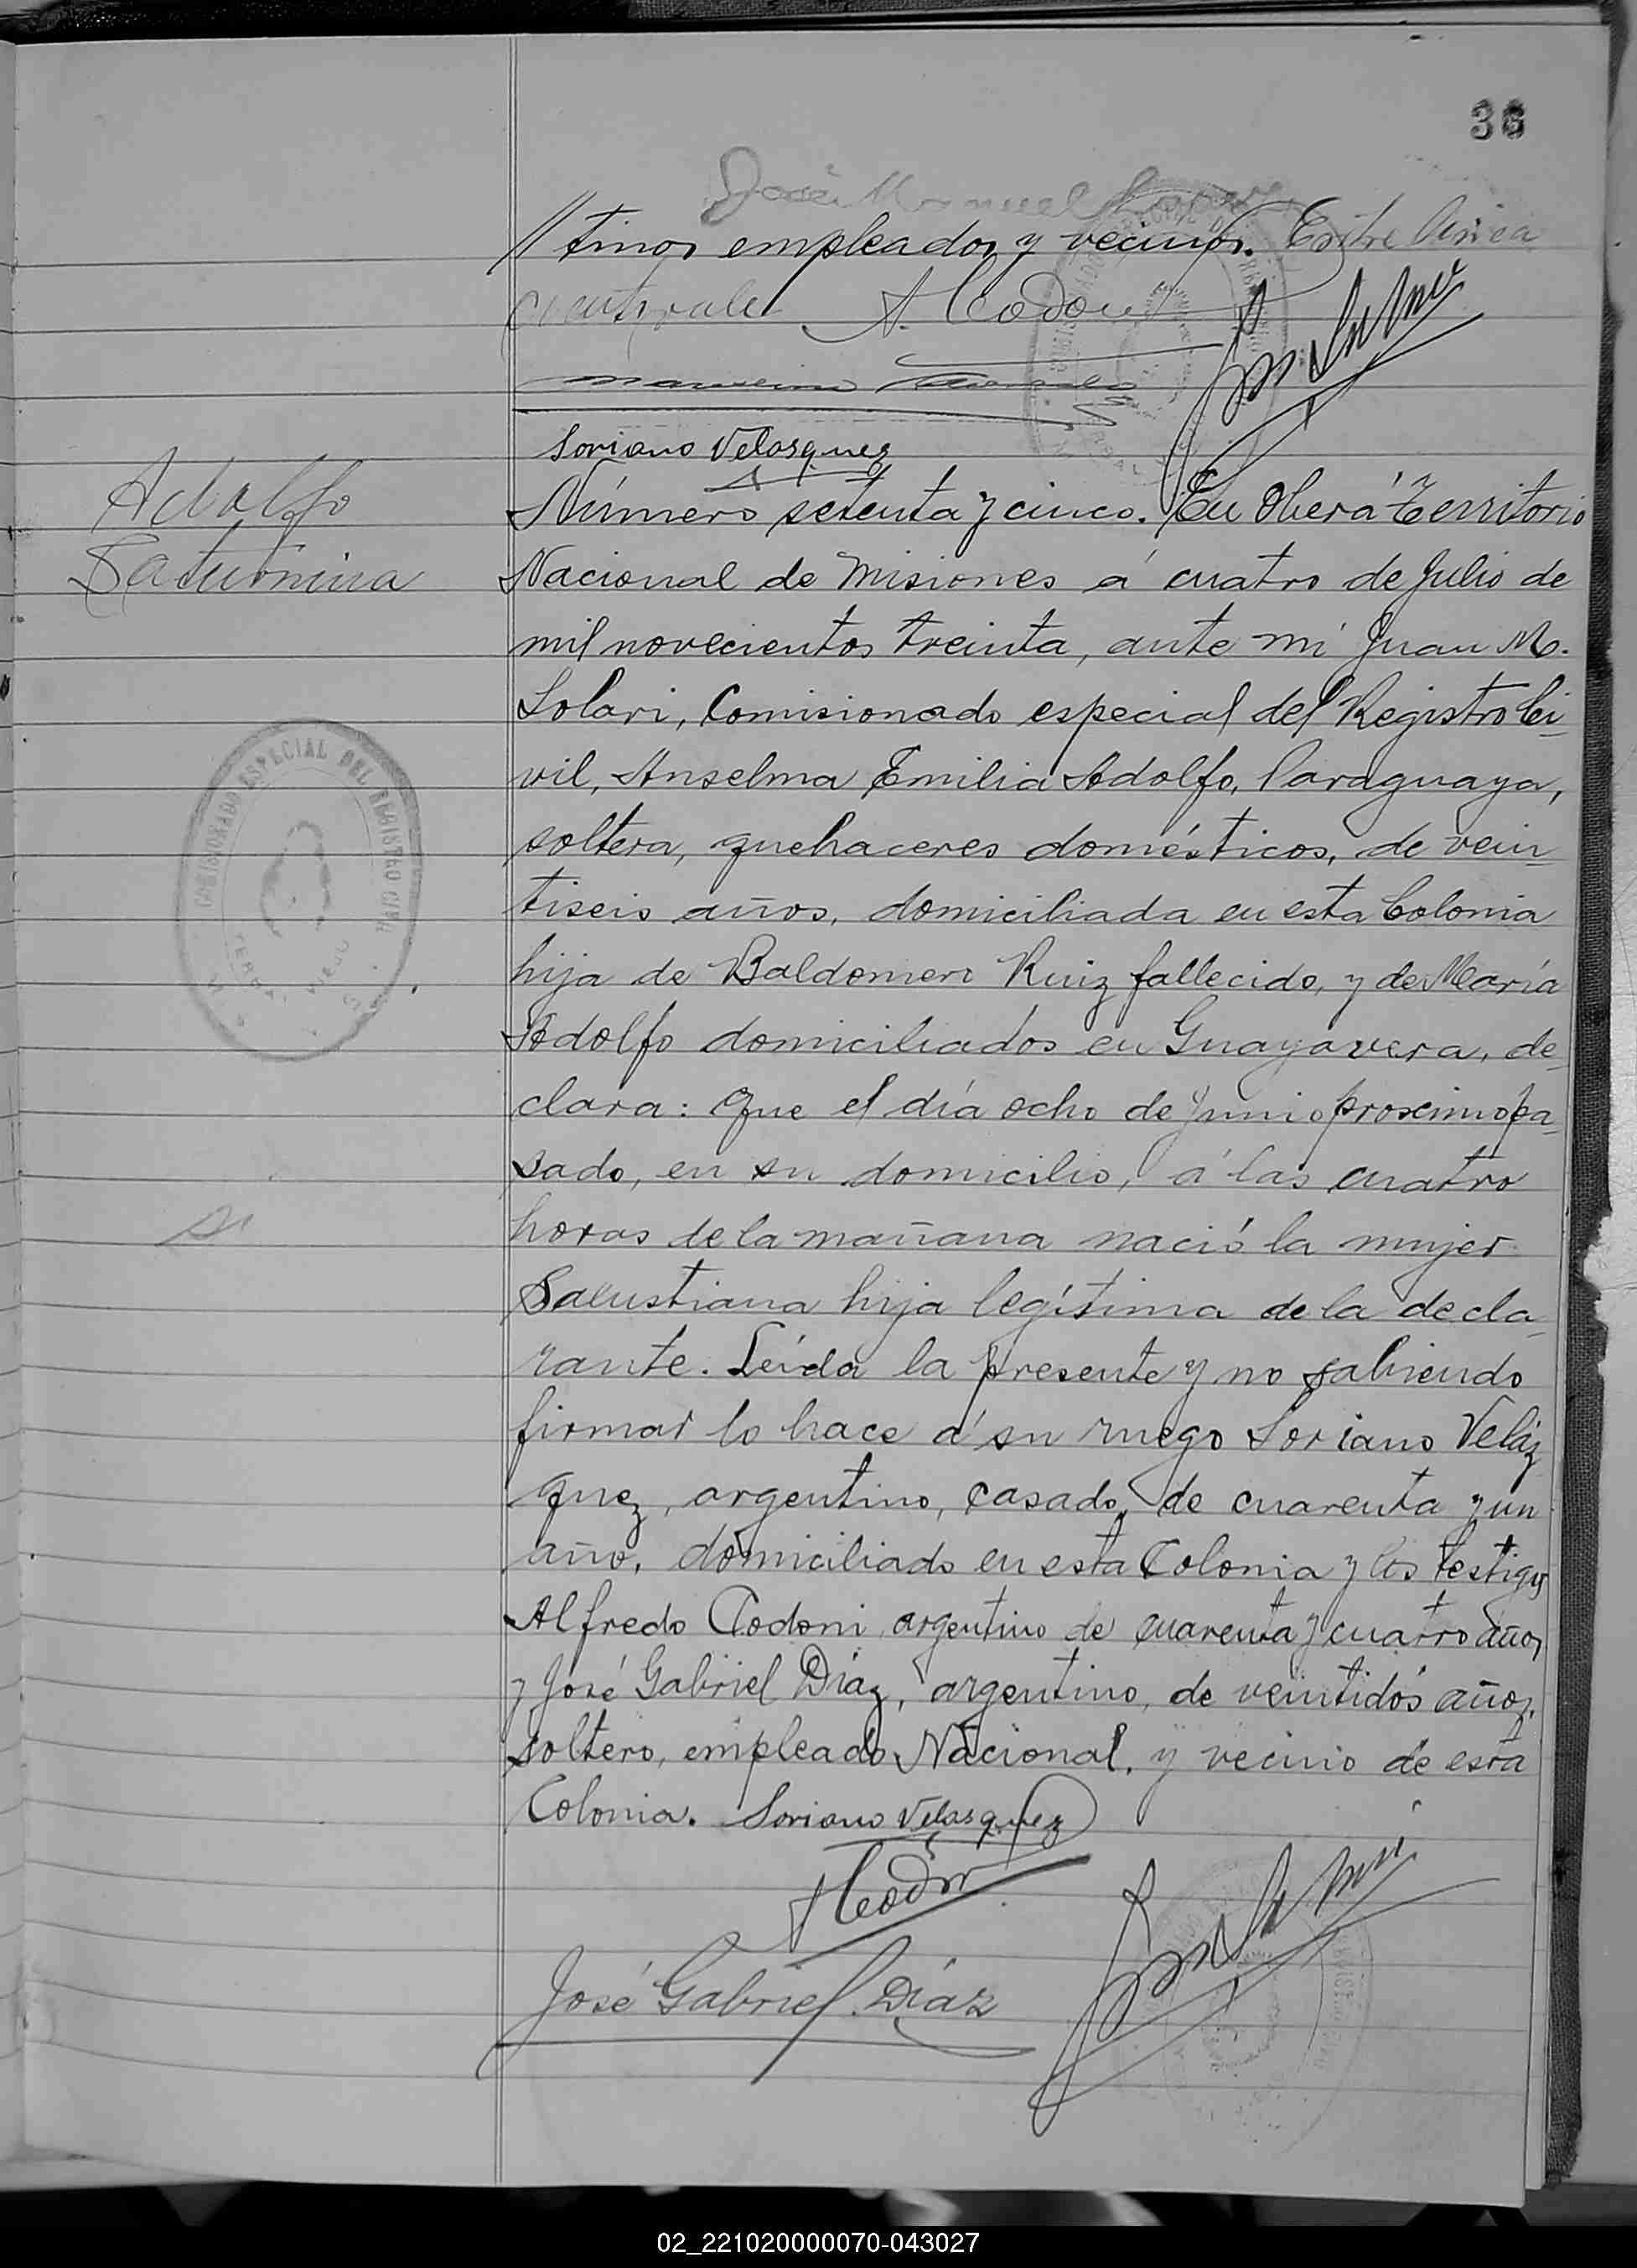 36
José Manuel
// tinos empleados y vecinos. Entre línea
A. Codoni
Soriano Velasquez
Adolfo
Saturnina
Número setenta y cinco. En Oberá Territorio
Nacional de Misiones á cuatro de Julio de
mil novecientos treinta, ante mí Juan M.
Solari, Comisionado especial del Registro Ci-
vil, Anselma Emilia Adolfo, Paraguaya,
soltera, quehaceres domésticos, de vein-
tiseis años, domiciliada en esta Colonia
hija de Baldomero Ruiz fallecido, y de María
Adolfo domiciliados en Guayavera, de-
clara: que el día ocho de Junio proximo pa-
sado, en su domicilio, á las cuatro
horas de la mañana nació la mujer
Salustiana hija legítima de la decla-
rante. Leída la presente y no sabiendo
firmar lo hace á su ruego Soriano Veláz
quez, argentino, casado, de cuarenta y un
año, domiciliado en esta Colonia y los testigos
Alfredo Codoni argentino de cuarenta y cuatro años
y José Gabriel Díaz, argentino, de veintidós años,
soltero, empleado Nacional, y vecino de esta
Colonia. Soriano Velasquez
A Codoni
José Gabriel Díaz
COMISIONADO ESPECIAL DEL REGISTRO CIVIL
02_221020000070-043027